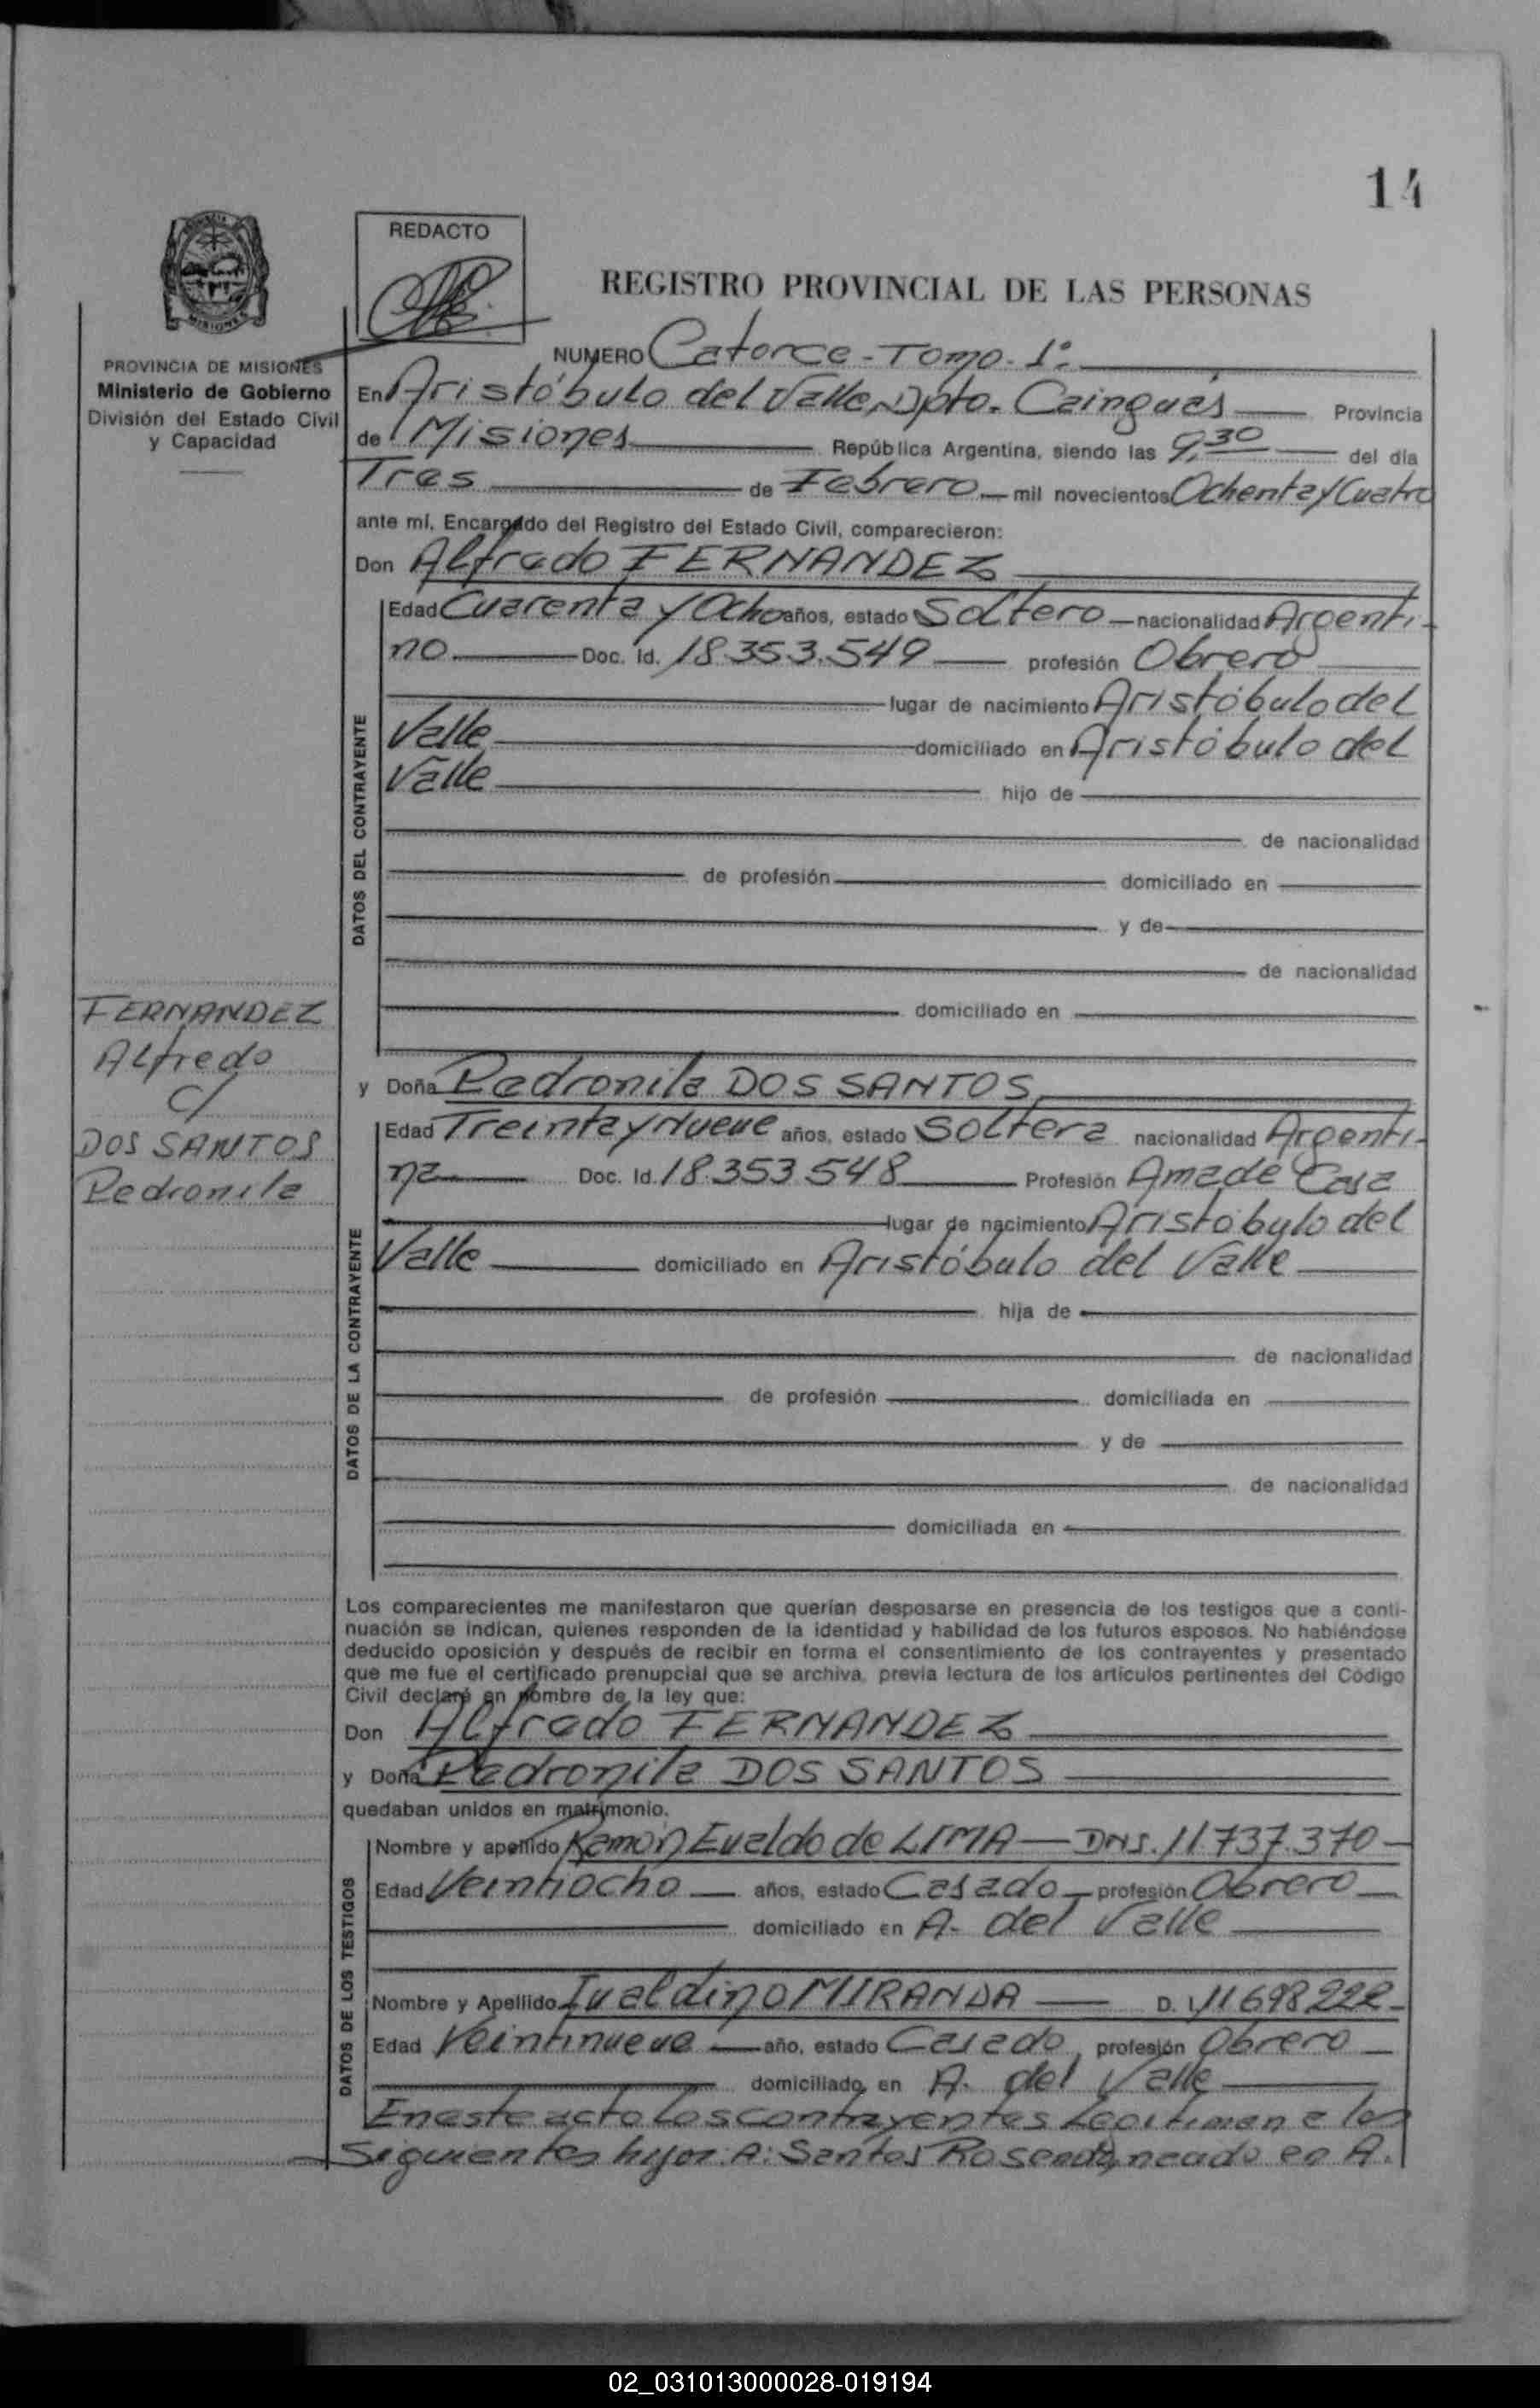 14
REDACTO
REGISTRO PROVINCIAL DE LAS PERSONAS
MISIONES
PROVINCIA DE MISIONES
Ministerio de Gobierno
División del Estado Civil
y Capacidad
NUMERO Catorce - Tomo - 1º
En Aristóbulo del Valle, Dpto. Cainguás Provincia
de Misiones República Argentina, siendo las 9,30 del día
Tres de Febrero mil novecientos Ochenta y Cuatro
ante mí, Encargado del Registro del Estado Civil, comparecieron:
Don Alfredo FERNANDEZ
DATOS DEL CONTRAYENTE
Edad Cuarenta y Ocho años, estado Soltero nacionalidad Argenti-
no Doc. Id. 18.353.549 profesión Obrero
lugar de nacimiento Aristóbulo del
Valle domiciliado en Aristóbulo del
Valle hijo de
de nacionalidad
de profesión domiciliado en
y de
de nacionalidad
domiciliado en
FERNANDEZ
Alfredo
C/
DOS SANTOS
Pedronila
y Doña Pedronila DOS SANTOS
DATOS DE LA CONTRAYENTE
Edad Treinta y Nueve años, estado Soltera nacionalidad Argenti-
na Doc. Id. 18.353.548 Profesión Ama de Casa
lugar de nacimiento Aristóbulo del
Valle domiciliado en Aristóbulo del Valle
hija de
de nacionalidad
de profesión domiciliada en
y de
de nacionalidad
domiciliada en
Los comparecientes me manifestaron que querían desposarse en presencia de los testigos que a conti-
nuación se indican, quienes responden de la identidad y habilidad de los futuros esposos. No habiéndose
deducido oposición y después de recibir en forma el consentimiento de los contrayentes y presentado
que me fue el certificado prenupcial que se archiva, previa lectura de los artículos pertinentes del Código
Civil declaré en nombre de la ley que:
Don Alfredo FERNANDEZ
y Doña Pedronila DOS SANTOS
quedaban unidos en matrimonio.
DATOS DE LOS TESTIGOS
Nombre y apellido Ramón Evaldo de LIMA DNI. 11.737.370
Edad Veintiocho años, estado Casado profesión Obrero
domiciliado en A. del Valle
Nombre y Apellido Ivaldino MIRANDA D. I. 11698222
Edad Veintinueve año, estado Casado, profesión Obrero
domiciliado en A. del Valle
En este acto los contrayentes legitiman a los
siguientes hijos: A: Santos Rosendo, nacido en A.
02_031013000028-019194